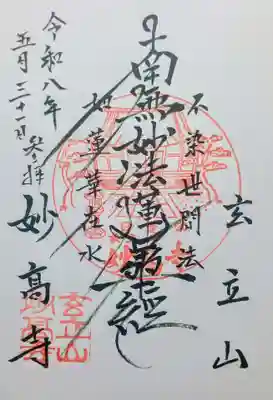 玄立山
不染世間法
南無妙法蓮華経
如蓮華在水
妙高寺
令和八年
五月三十一日参拝
玄立山
妙高寺